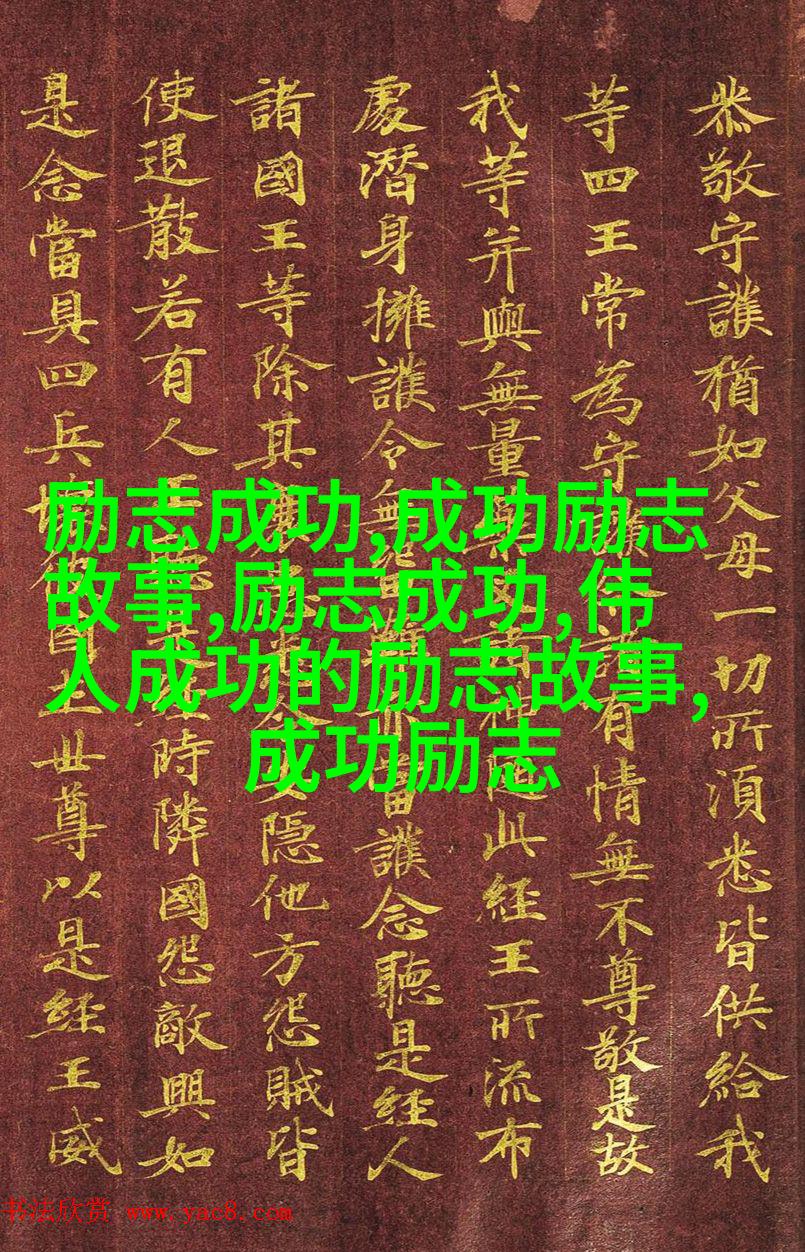 恭敬守護猶如父母一切所須悉皆供給我
等四王常為守有情無不尊敬是故
我等并與無量此經王所流布
處潛身擁護令無當護念聽是經人
諸國王等除其隱他方怨賊皆
使退散若有人時隣國怨敵興如
是念當具四兵世尊以是經王威
励志成功,成功励志
故事,励志成功,伟
人成功的励志故事,
成功励志
书法欣赏 www.yac8.com